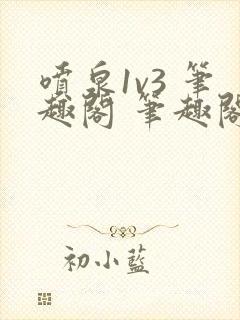 噴泉1v3 筆
趣閣 筆趣閣
初小藍